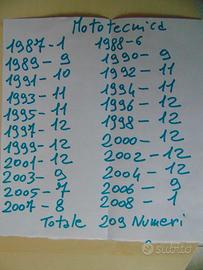 Mototecnica
1987-1 1988-6
1989-9 1990-9
1991-10 1992-11
1993-11 1994-11
1995-11 1996-12
1997-12 1998-12
1999-12 2000-12
2001-12 2002-12
2003-9 2004-12
2005-7 2006-9
2007-8 2008-1
Totale 209 Numeri
subito